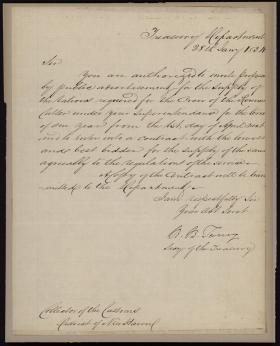 Treasury Department
28th Jany 1834
Sir
You are authorized to invite proposals
by public advertisement for the supply of
the rations required for the Crew of the Revenue
Cutter under your Superintendence for the term
of one year from the 1st day of April next
and to enter into a contract with the lowest
and best bidder for the supply of the same
agreeably to the regulations of the service.
A copy of the Contract will be trans-
mitted to the Department.
I am respectfully Sir
Your Obt Servt
R. B. Taney
Secy of the Treasury
Collector of the Customs
District of New